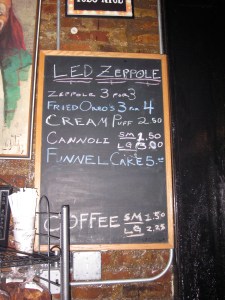 LED ZEPPOLE
ZEPPOLE 3 FOR 3
FRIED OREO'S 3 FOR 4
CREAM PUFF 2.50
CANNOLI SM 1.50
LG 3.00
FUNNEL CAKE 5.00
COFFEE SM 1.50
LG 2.25